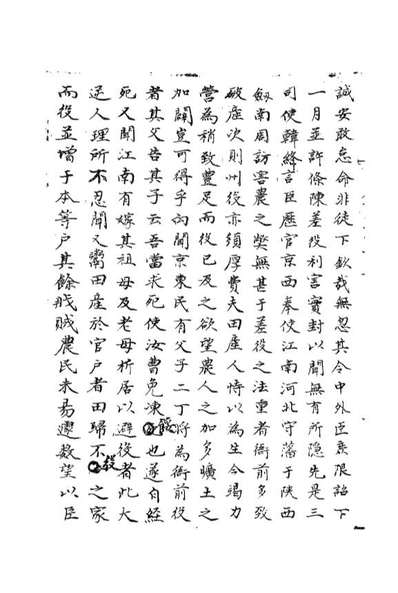 誠安敢忘命非徒下欽哉無忽其令中外臣庶限詔下
一月並許條陳差役利害實封以聞無有所隱先是三
司使韓絳言臣歷官京西奉使江南河北守藩于陝西
劔南周訪害農之弊無甚于差役之法重者衙前多致
破産次則州役亦須厚費夫田産人恃以為生今竭力
營為稍致豐足而役已及之欲望農人之加多曠土之
加闢豈可得乎向聞京東民有父子二丁將為衙前役
者其父告其子云吾當求死使汝曹免凍餒也遂自經
死又聞江南有嫁其祖母及老母析居以避役者此大
逆人理所不忍聞又鬻田産於官户者田歸不役之家
而役並增于本等户其餘戕賊農民未易遽數望以臣